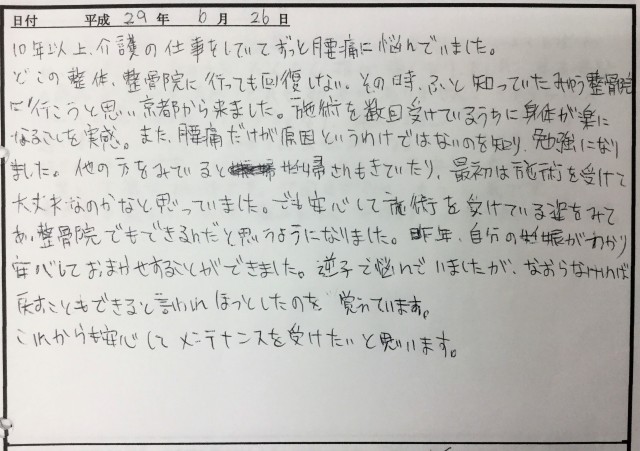 日付 平成 29 年 6 月 26 日
10年以上、介護の仕事をしていてずっと腰痛に悩んでいました。
どこの整体、整骨院に行っても回復しない。その時、ふと知っていたみゆう整骨院
に行こうと思い京都から来ました。施術を数回受けているうちに身体が楽に
なることを実感。また、腰痛だけが原因というわけではないのを知り、勉強になり
ました。他の方をみていると妊婦さんもきていたり、最初は施術を受けて
大丈夫なのかなと思っていました。でも安心して施術を受けている姿をみて
あ、整骨院でもできるんだと思うようになりました。昨年、自分の妊娠がわかり
安心しておまかせすることができました。逆子で悩んでいましたが、なおらなければ
戻すこともできると言われほっとしたのを覚えています。
これからも安心してメンテナンスを受けたいと思います。